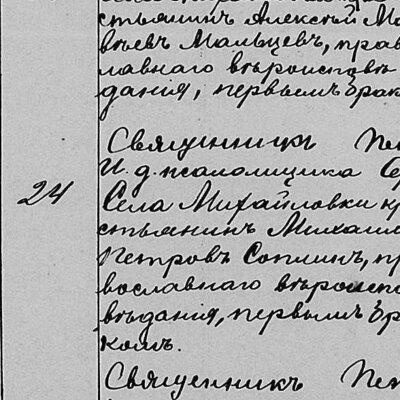 стьянинъ Алексѣй Ма
вѣевъ Мальцевъ, прав
лавнаго вѣроисповѣ
данія, первымъ брак
Священникъ Пе
И. д. псаломщика Се
24 Села Михайловки кр
стьянинъ Михаил
Петровъ Соплинъ, пр
вославнаго вѣроиспо
вѣданія, первымъ бра
комъ.
Священникъ Пет